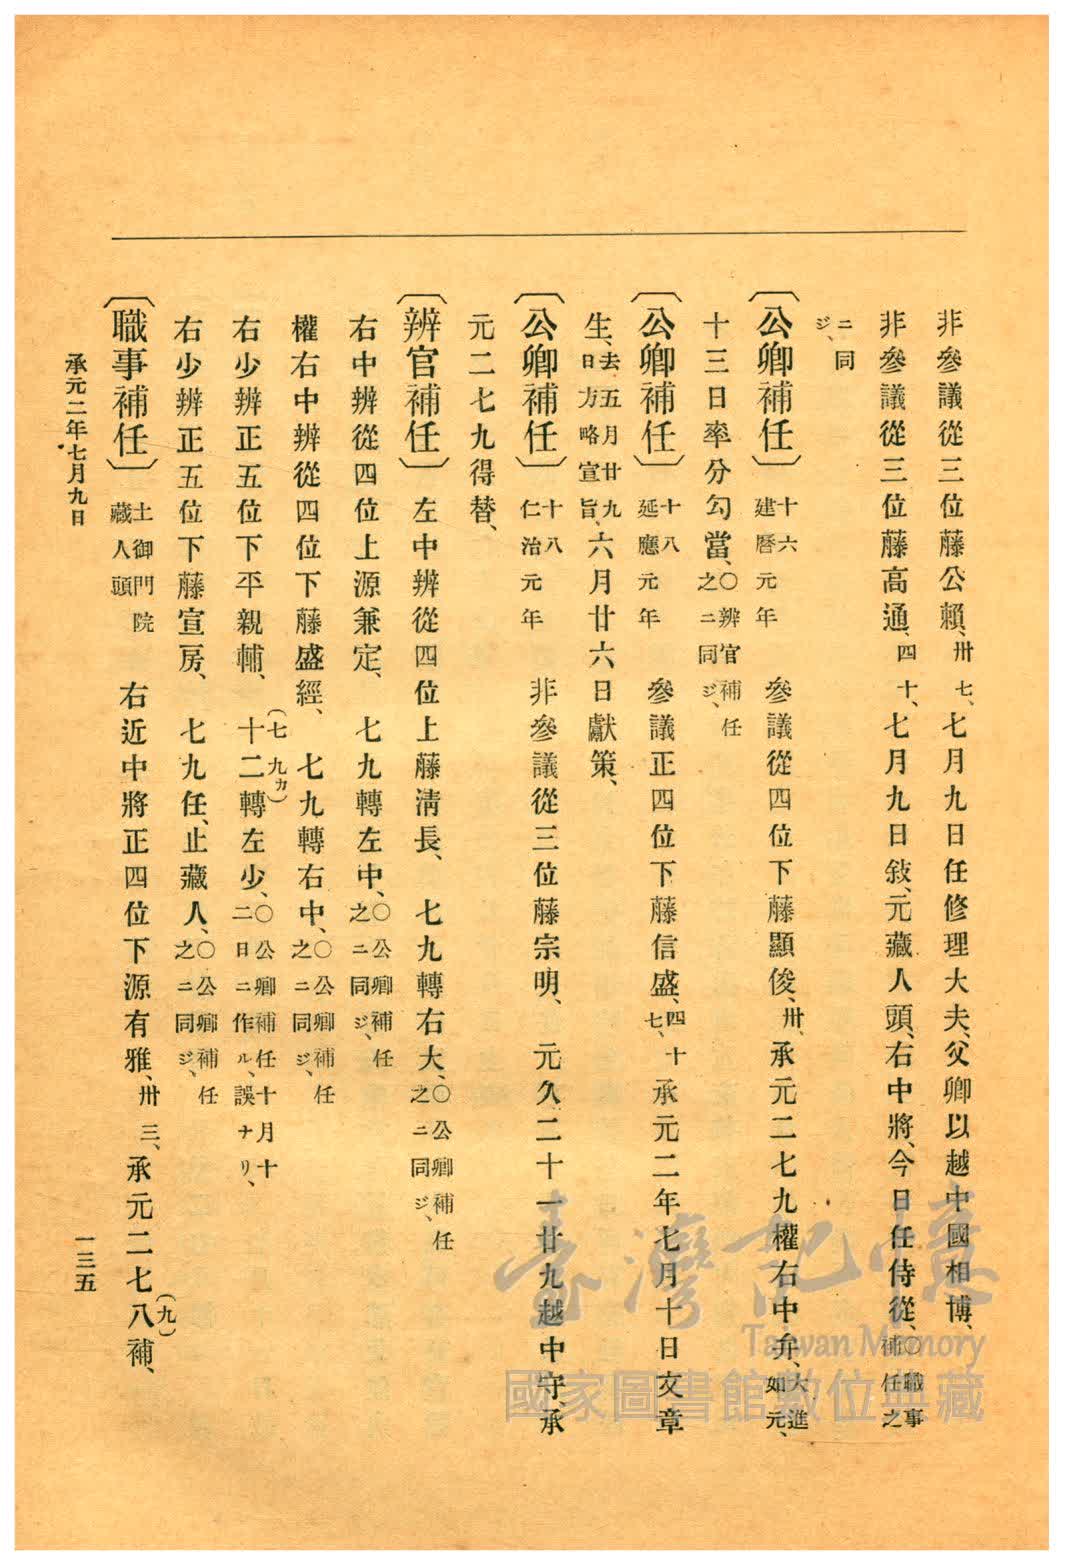 非參議從三位藤公賴、卅七、七月九日任修理大夫、父卿以越中國相博、
非參議從三位藤高通、四十、七月九日敍、元藏人頭、右中將、今日任侍從、〇職事補任之
ニ同ジ、
〔公卿補任〕十六建曆元年 參議從四位下藤顯俊、卅、承元二七九權右中弁、大進如元、
十三日率分勾當、〇辨官補任之ニ同ジ、
〔公卿補任〕十八延應元年 參議正四位下藤信盛、四十七、承元二年七月十日文章
生、去五月廿九日方略宣旨、六月廿六日獻策、
〔公卿補任〕十八仁治元年 非參議從三位藤宗明、元久二十一廿九越中守、承
元二七九得替、
〔辨官補任〕左中辨從四位上藤淸長、七九轉右大、〇公卿補任之ニ同ジ、
右中辨從四位上源兼定、七九轉左中、〇公卿補任之ニ同ジ、
權右中辨從四位下藤盛經、七九轉右中、〇公卿補任之ニ同ジ、
右少辨正五位下平親輔、十二(七九カ)轉左少、〇公卿補任十月十二日ニ作ル、誤ナリ、
右少辨正五位下藤宣房、七九任、止藏人、〇公卿補任之ニ同ジ、
〔職事補任〕土御門院藏人頭 右近中將正四位下源有雅、卅三、承元二七八(九)補、
承元二年七月九日
一三五
臺灣記憶
Taiwan Memory
國家圖書館數位典藏